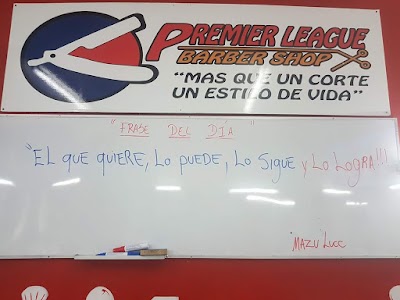 PREMIER LEAGUE
BARBER SHOP
"MAS QUE UN CORTE
UN ESTILO DE VIDA"
"FRASE DEL DÍA"
"EL QUE QUIERE, LO PUEDE, LO SIGUE Y LO LOGRA!!!
"MAZU" LUCC